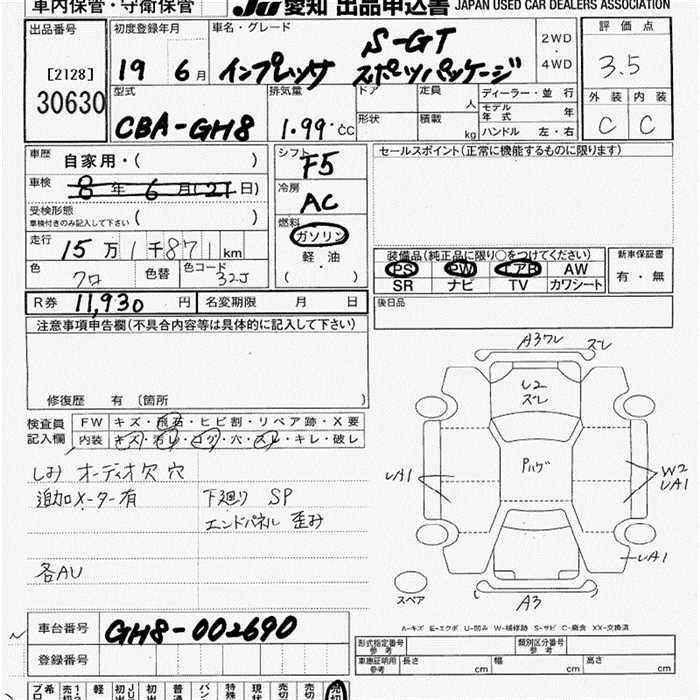 車内保管・守衛保管
JU 愛知 出品申込書 JAPAN USED CAR DEALERS ASSOCIATION
出品番号
[2128]
30630
初度登録年月
19 6月
車名・グレード
インプレッサ S-GT
スポーツパッケージ
2WD
・
4WD
評価点
3.5
外装 内装
C C
型式
CBA-GH8
排気量
1.99 cc
ドア
定員 人
形状
積載 kg
ディーラー・並行
モデル年式 年
ハンドル 左・右
車歴
自家用・( )
車検
8年 6月(21日)
受検形態
車検付きのみ記入して下さい ( )
走行
15万1千871km
色
クロ
色替
色コード
32J
シフト
F5
冷房
AC
燃料
ガソリン
・
軽・油
( )
セールスポイント(正常に機能するものに限ります)
装備品(純正品に限り○をつけてください)
PS PW エアB AW
SR ナビ TV カワシート
新車保証書
有・無
R券 11,930 円
名変期限 月 日
後日品
注意事項申告欄(不具合内容等は具体的に記入して下さい)
修復歴 有 〔箇所 〕
検査員
記入欄
FW キズ・飛石・ヒビ割・リペア跡・X要
内装 キズ・汚レ・コゲ・穴・スレ・キレ・破レ
しみ オーディオ欠 穴
追加メーター有
下廻り SP
エンドパネル 歪み
各AU
A3ワレ
ズレ
U2
ズレ
Pハゲ
UA1
W2
UA1
UA1
A3
スペア
A-キズ E-エクボ U-凹み W-補修跡 S-サビ C-腐食 XX-交換済
車台番号 GH8-002690
登録番号
型式指定番号
参考
類別区分番号
参考
車庫証明用
参考
長さ cm
幅 cm
高さ cm